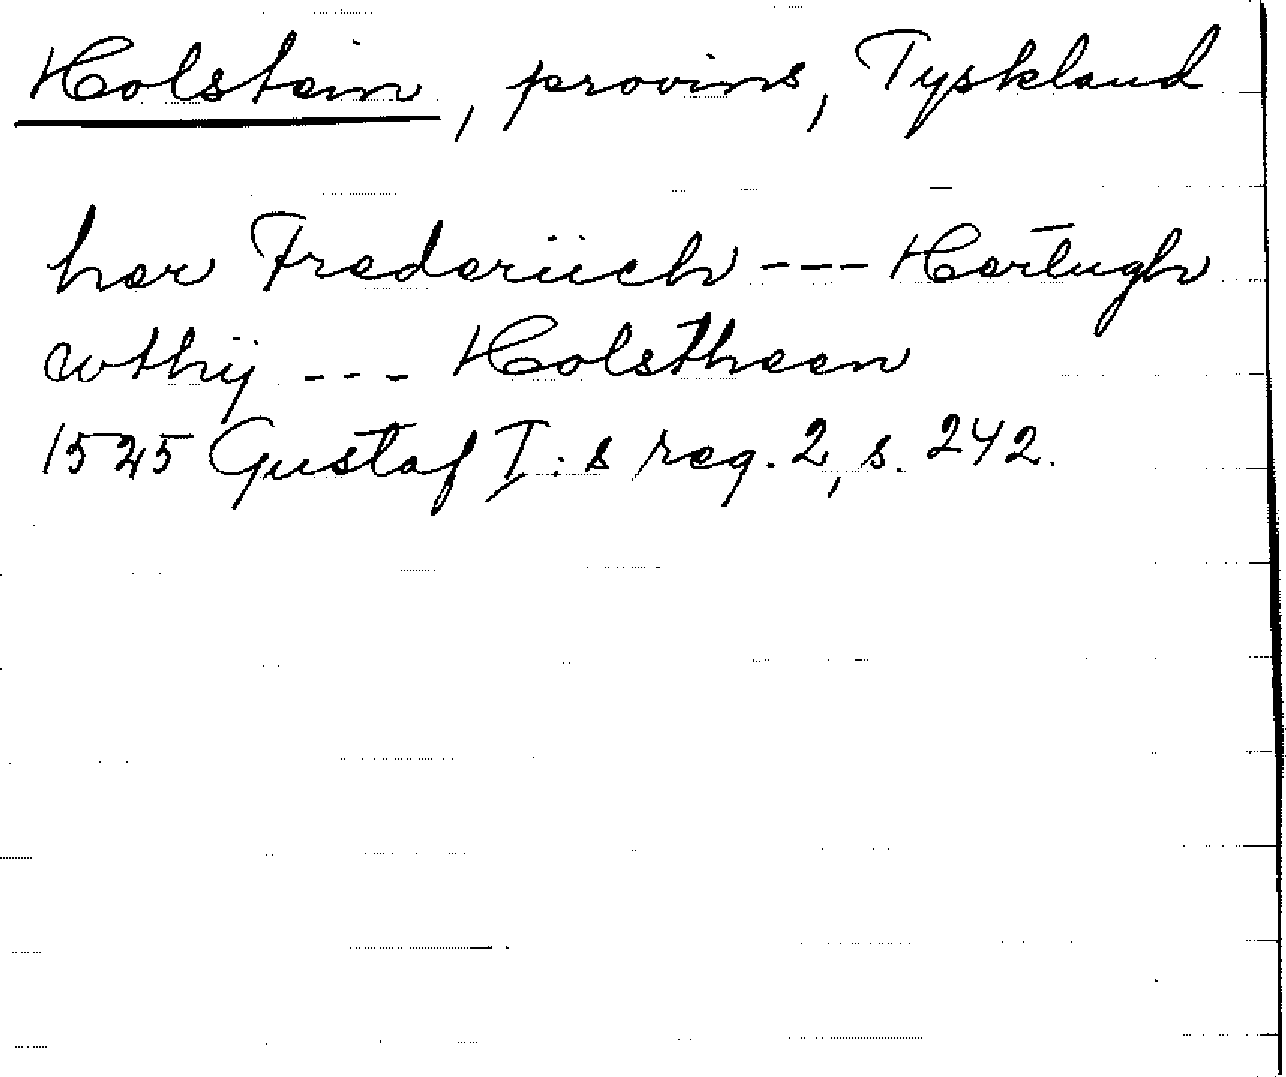 Holstein, provins, Tyskland
her Frederiich --- Hertugh
wthij --- Holstheen
1525 Gustaf I:s reg. 2, s. 242.